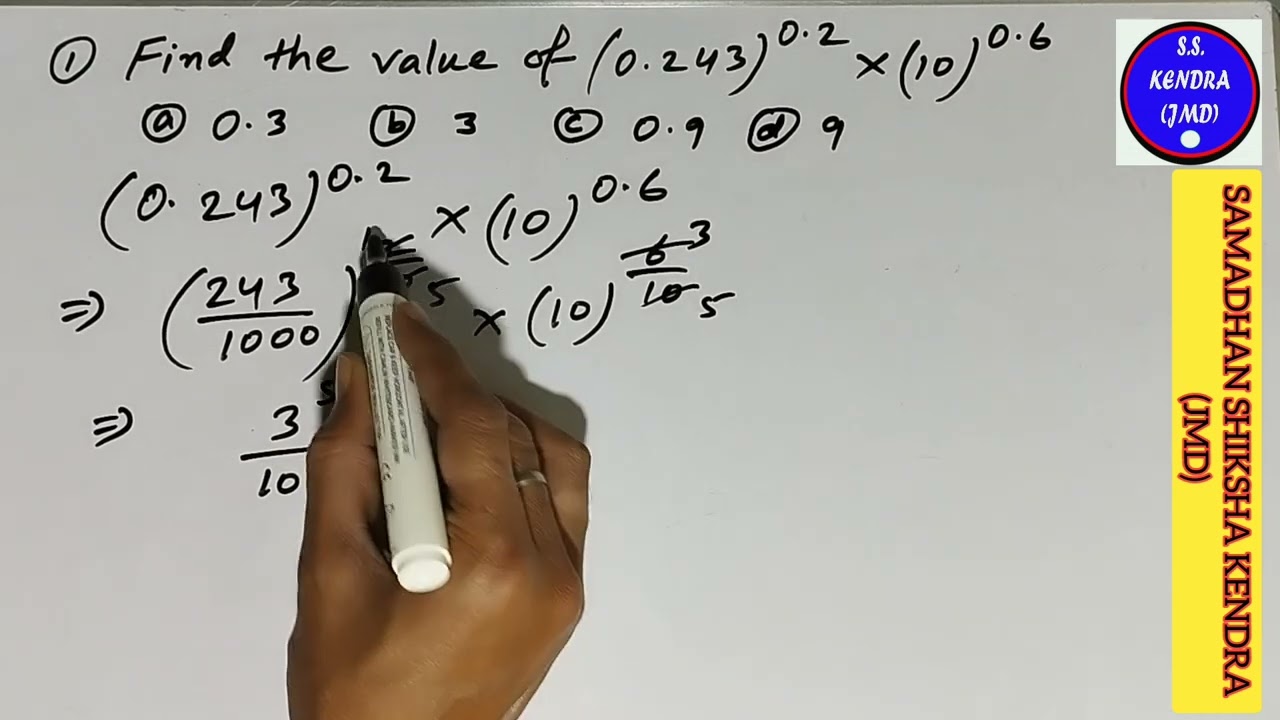 ① Find the value of (0.243)^0.2 × (10)^0.6
ⓐ 0.3 ⓑ 3 ⓒ 0.9 ⓓ 9
(0.243)^0.2 × (10)^0.6
⇒ (243/1000) 5 × (10)^6/10 3 5
⇒ 3/10
S.S.
KENDRA
(JMD)
SAMADHAN SHIKSHA KENDRA
(JMD)